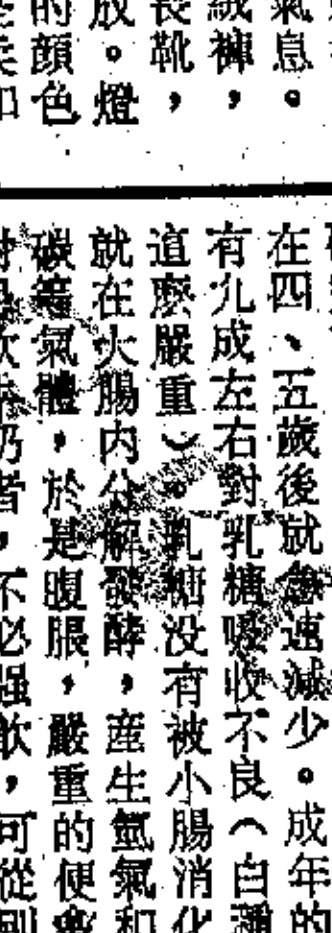 氣息。
絨褲，
長靴，
放。燈
的顏色
在四、五歲後就急速減少。成年的
有九成左右對乳糖吸收不良（白種
這麼嚴重）。乳糖没有被小腸消化
就在大腸内分解發酵，産生氫氣和
碳等氣體，於是腹脹，嚴重的便會
飲牛奶者，不必强飲，可從別